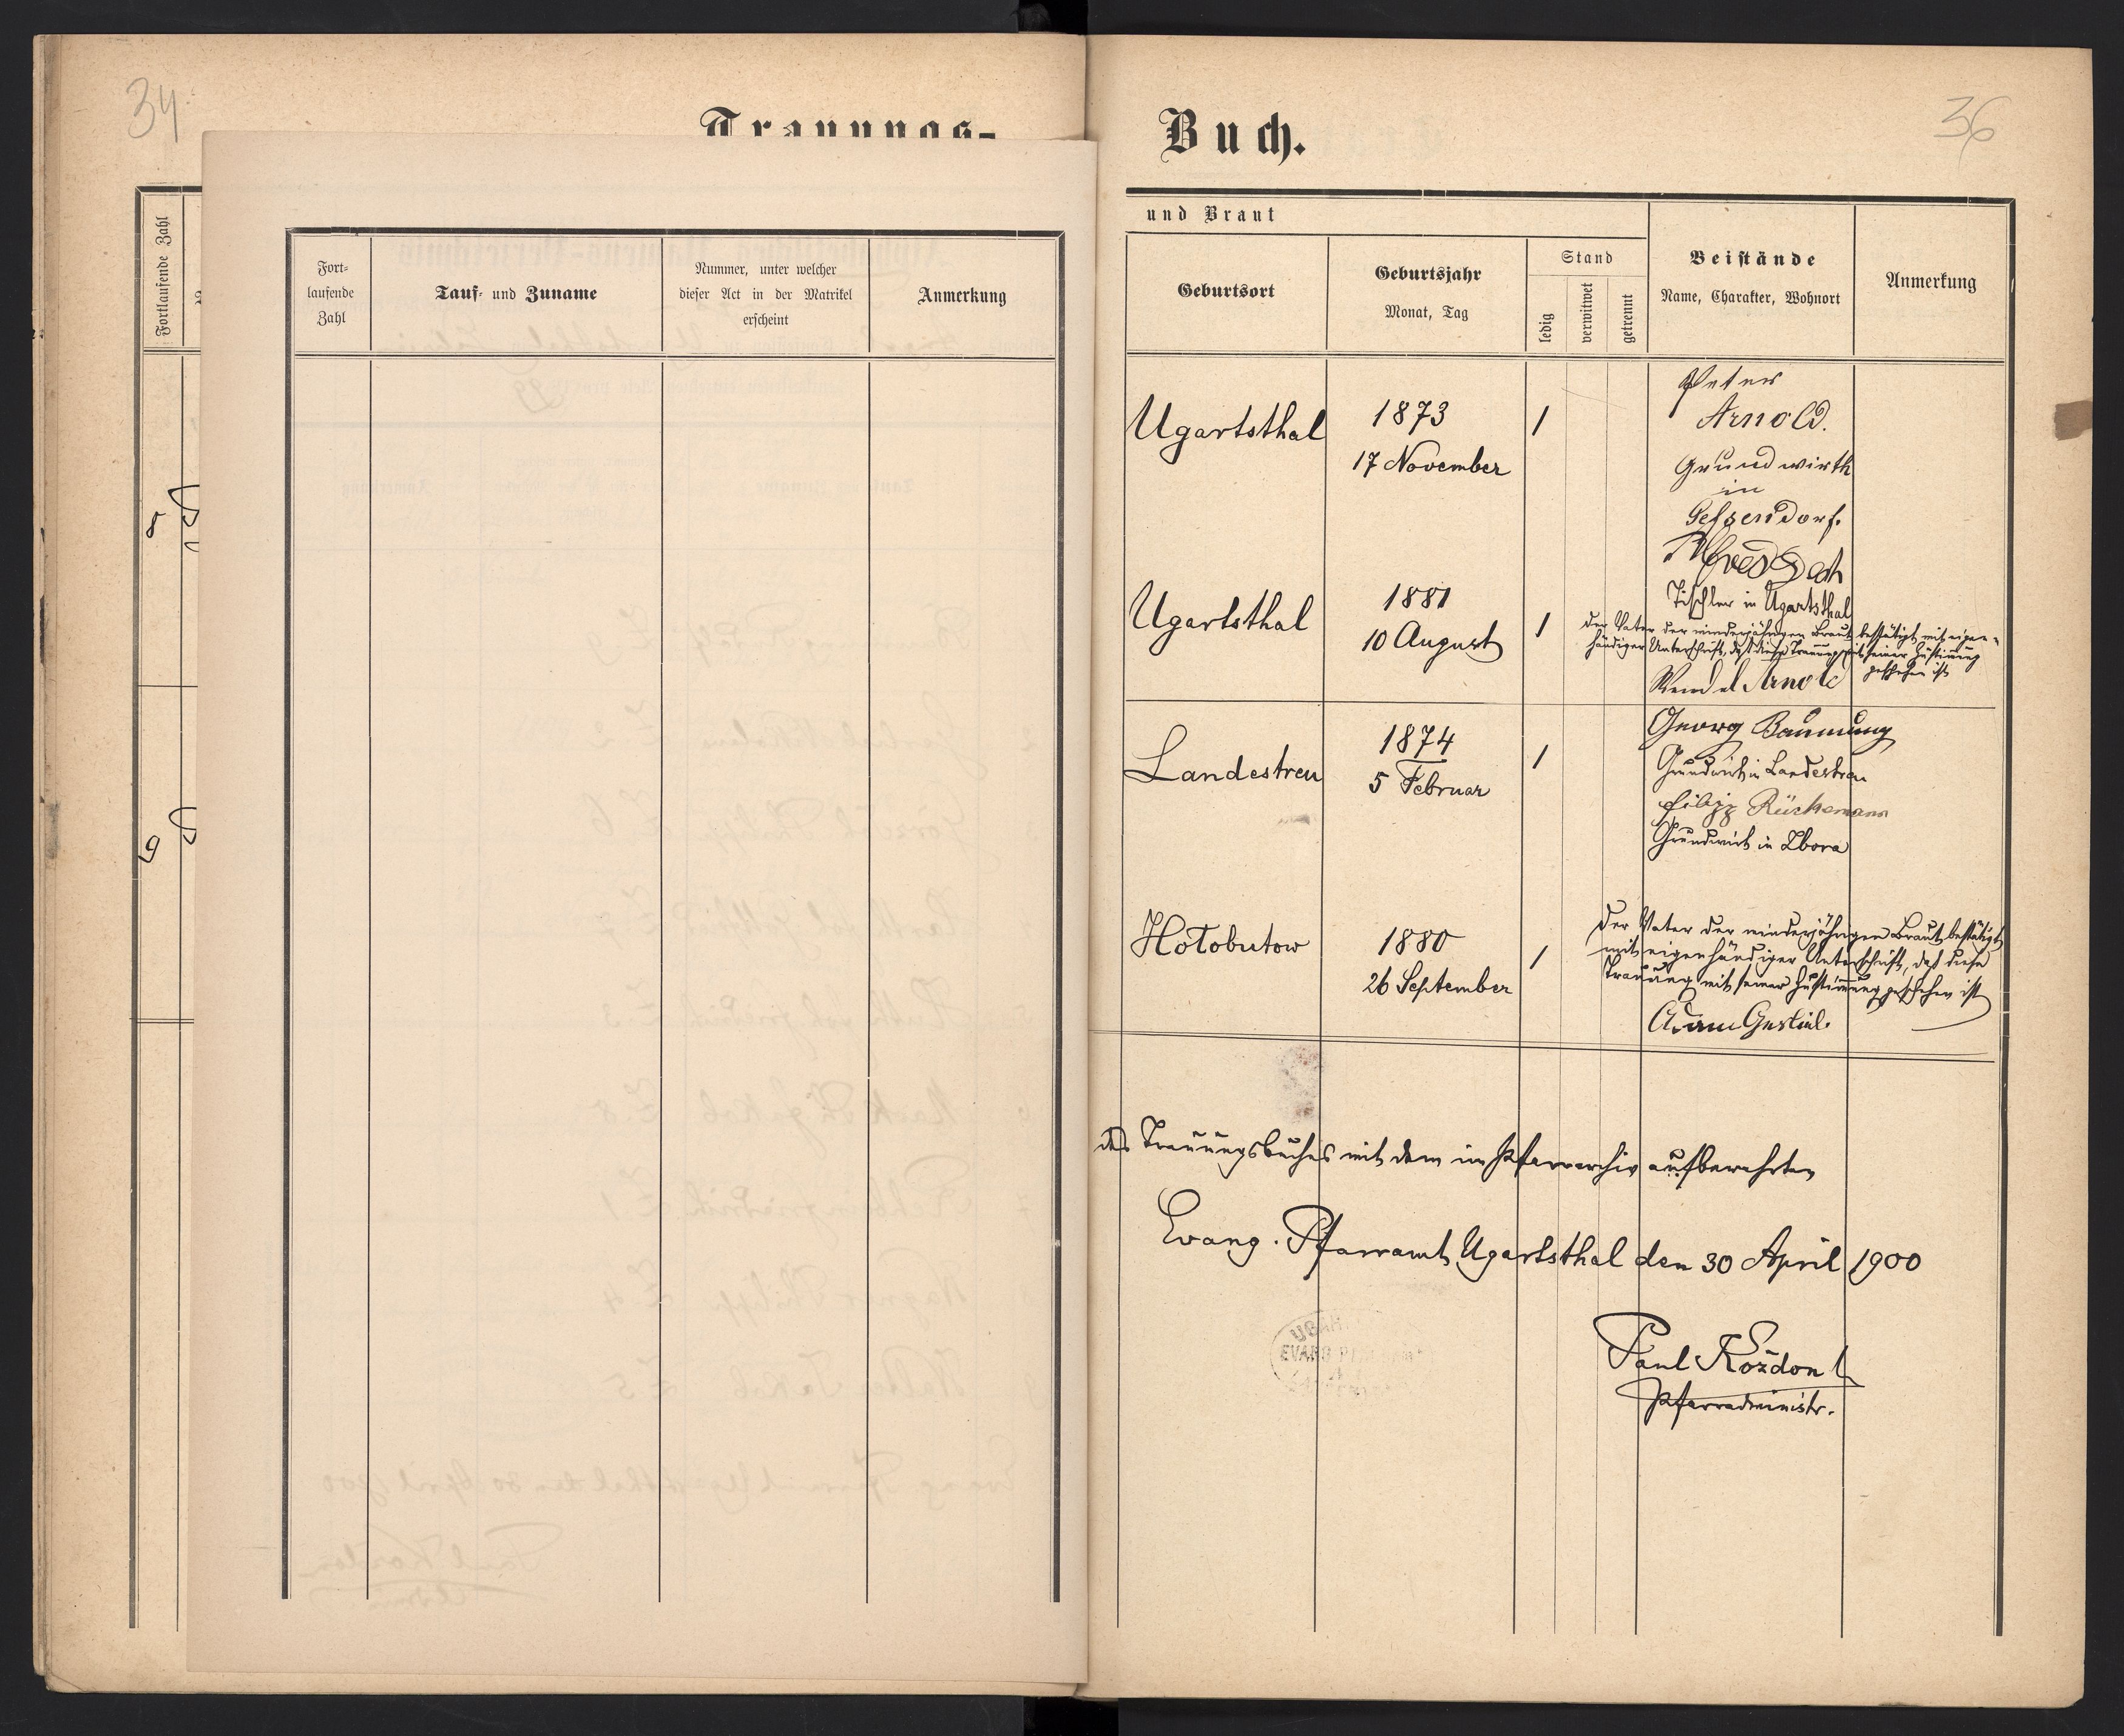 34
Trauungs-
Fortlaufende Zahl
8
9
Fort-
laufende
Zahl
Tauf- und Zuname
Nummer, unter welcher
dieser Act in der Matrikel
erscheint
Anmerkung
Buch.
36
und Braut
Geburtsort
Geburtsjahr
Monat, Tag
Stand
ledig
verwitwet
getrennt
Beistände
Name, Charakter, Wohnort
Anmerkung
Peter
Arnold.
Ugartsthal
1873
1
17 November
Grundwirth
in
Gelsendorf.
Tischler in Ugartsthal
Ugartsthal
1881
10 August
1
der Vater der minderjährigen Braut bestätigt mit eigen-
händiger Unterschrift, daß diese Trauung mit seiner Zustimmung
geschehen ist
Wendel Arnold
Landestreu
1874
5 Februar
1
Georg
Grundwirt in Landestreu
Filipp
Grundwirt in Zbora
Hołobutow
1880
26 September
1
der Vater der minderjährigen Braut bestätigt
mit eigenhändiger Unterschrift, daß diese
Trauung mit seiner Zustimmung geschehen ist
Adam
des Trauungsbuches mit dem im Pfarrarchiv aufbewahrten
Evang. Pfarramt Ugartsthal den 30 April 1900
Paul Kożdon
Pfarradministr.